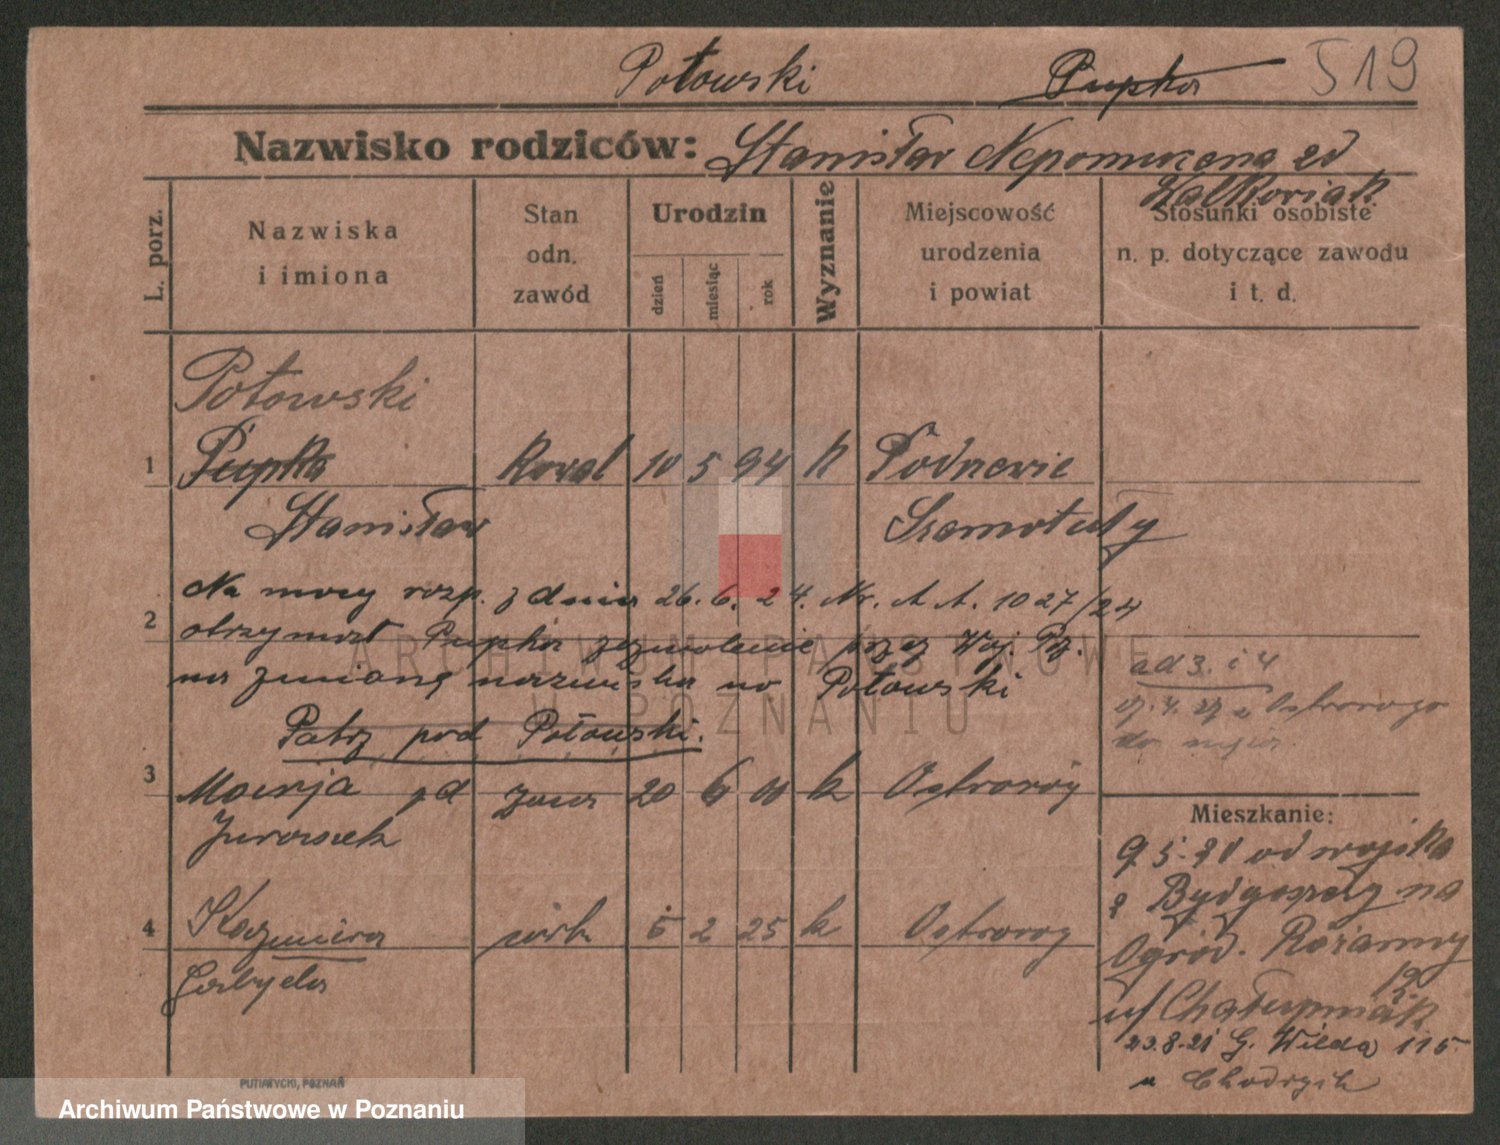 Połowski Pupka 519
Nazwisko rodziców: Stanisław Nepomucena zd
Walkoriak
L. porz.
Nazwiska
i imiona
Stan
odn.
zawód
Urodzin
dzień
miesiąc
rok
Wyznanie
Miejscowość
urodzenia
i powiat
Stosunki osobiste
n. p. dotyczące zawodu
i t. d.
Połowski
1 Pupka Kowal 10 5 94 k Podrzewie
Stanisław Szamotuły
Na mocy rozp. z dnia 26. 6. 24. Nr. A A. 1027/24
2
otrzymał Pupka zezwolenie przez Woj. Pz.
na zmianę nazwiska na Połowski
Patrz pod Połowski.
ad 3. i 4
z Ostroroga
do męża
3 Marja zd żona 20 6 00 k Ostroróg
Juraszek
4 Kazimiera córk. 5 2 25 k Ostroróg
Gabryela
Mieszkanie:
9. 5. 21 od wojska
z Bydgoszczy na
Ogród. Różanny
12
u/ Chałupniak
23.8.21 G. Wilda 115
u
PUTIATYCKI, POZNAŃ
ARCHIWUM PAŃSTWOWE
W POZNANIU
Archiwum Państwowe w Poznaniu